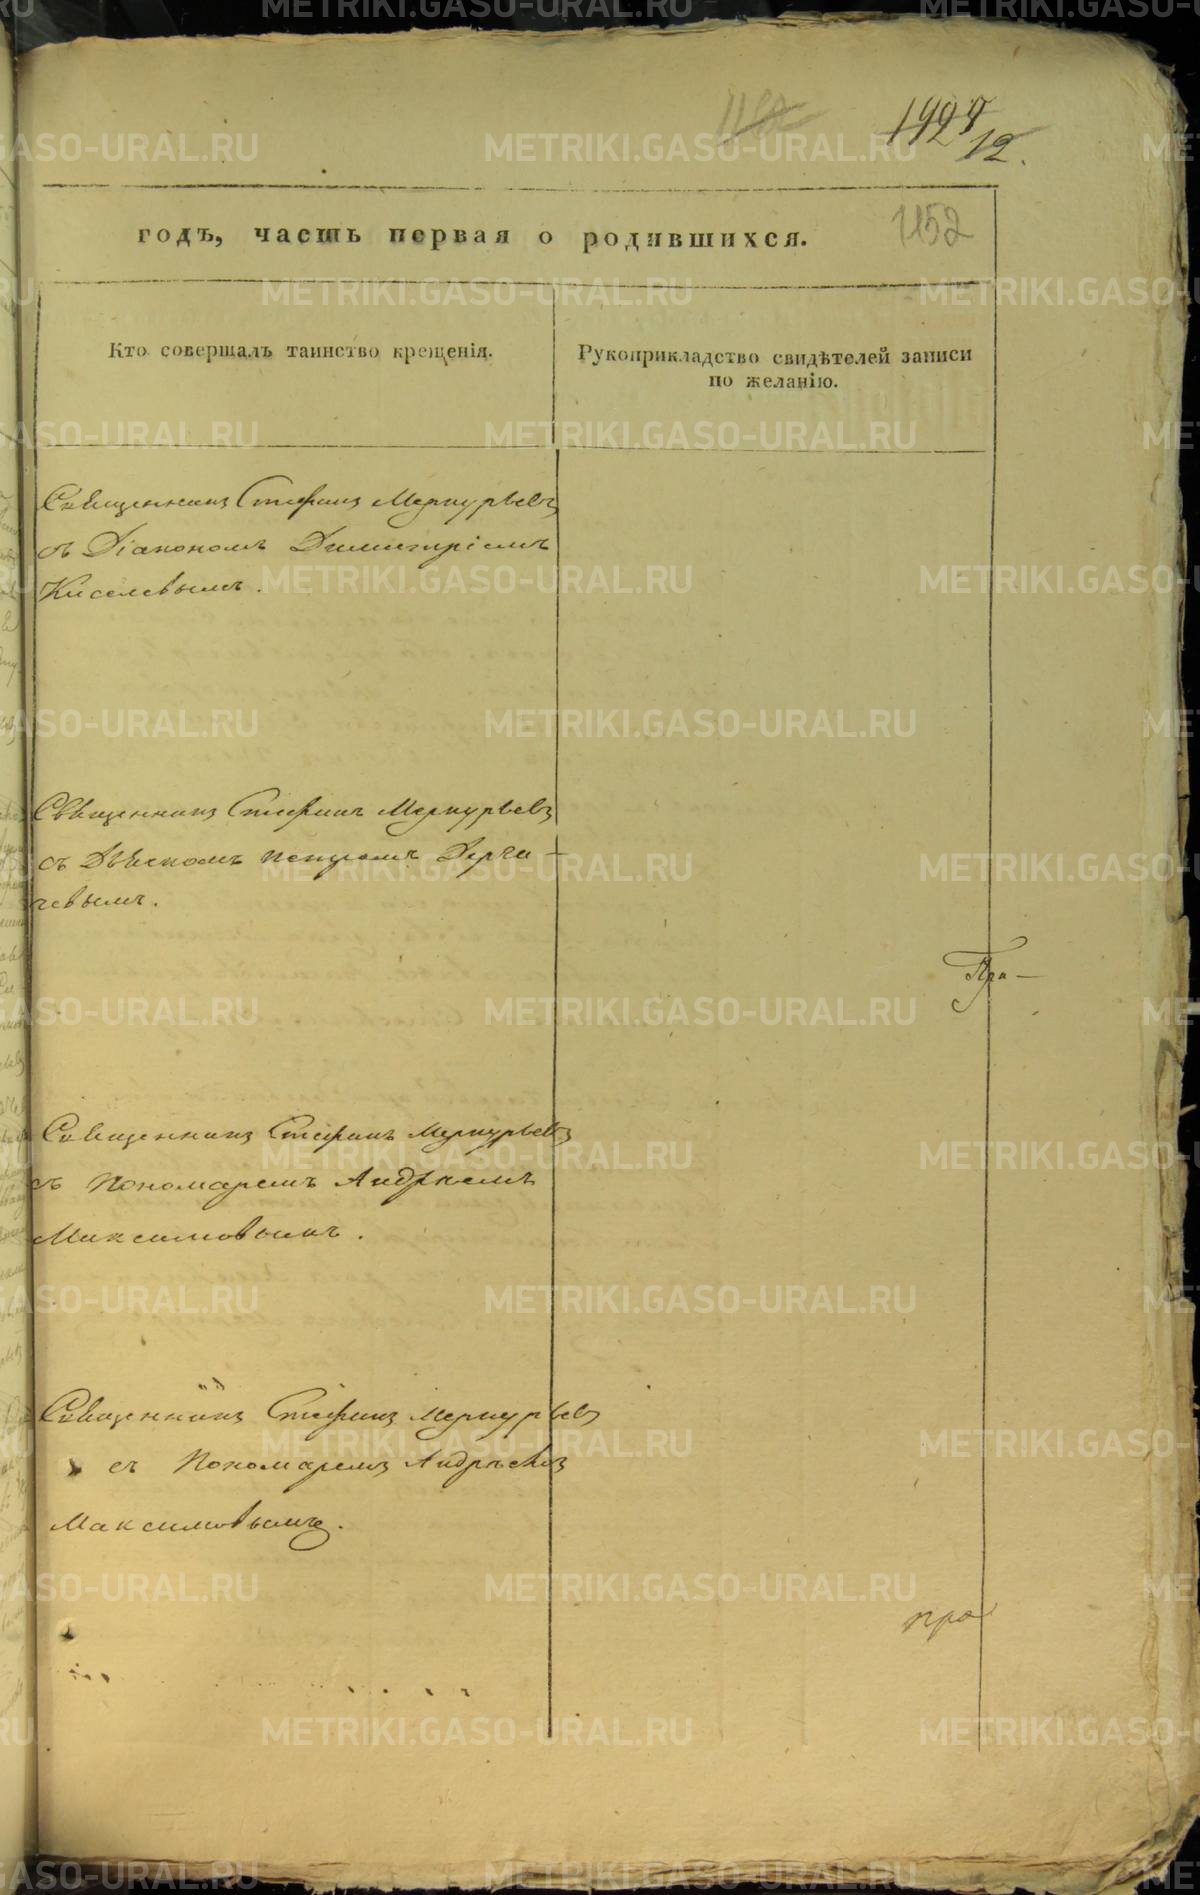 12.
1152
годъ, часть первая о родившихся.
Кто совершалъ таинство крещенія.
Рукоприкладство свидѣтелей записи
по желанію.
Священникъ Стефанъ Меркурьевъ
съ Діакономъ Димитріемъ
Киселевымъ.
Священникъ Стефанъ Меркурьевъ
съ Дьяскомъ Петромъ Дерга-
чевымъ.
Пра-
Священникъ Стефанъ Меркурьевъ
съ Пономаремъ Андреемъ
Максимовымъ.
Священникъ Стефанъ Меркурьевъ
съ Пономаремъ Андреемъ
Максимовымъ.
пра
METRIKI.GASO-URAL.RU